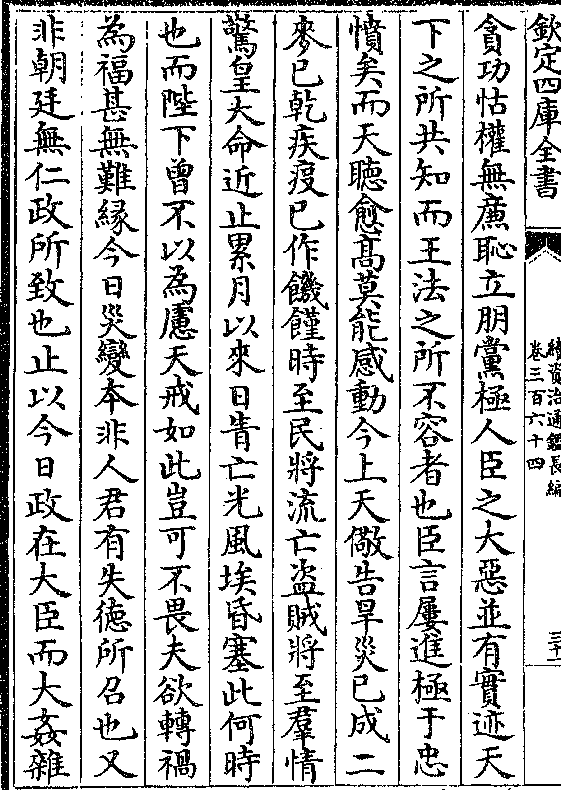 欽定四庫全書
續資治通鑑長編
卷三百六十四
三十一
貪功怙權無亷恥立朋黨極人臣之大惡並有實迹天
下之所共知而王法之所不容者也臣言屢進極于忠
憤矣而天聽愈髙莫能感動今上天儆告旱災已成二
麥已乾疾疫已作饑饉時至民將流亡盜賊將至羣情
驚皇大命近止累月以來日眚亡光風埃昏塞此何時
也而陛下曾不以為慮天戒如此豈可不畏夫欲轉禍
為福甚無難緣今日災變本非人君有失徳所召也又
非朝廷無仁政所致也止以今日政在大臣而大姦雜